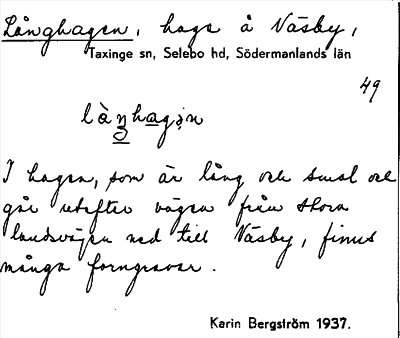 Långhagen, hage å Näsby,
Taxinge sn, Selebo hd, Södermanlands län
49
I hagen, som är lång och smal och
går utefter vägen från stora
landsvägen ned till Näsby, finns
många forngravar.
Karin Bergström 1937.